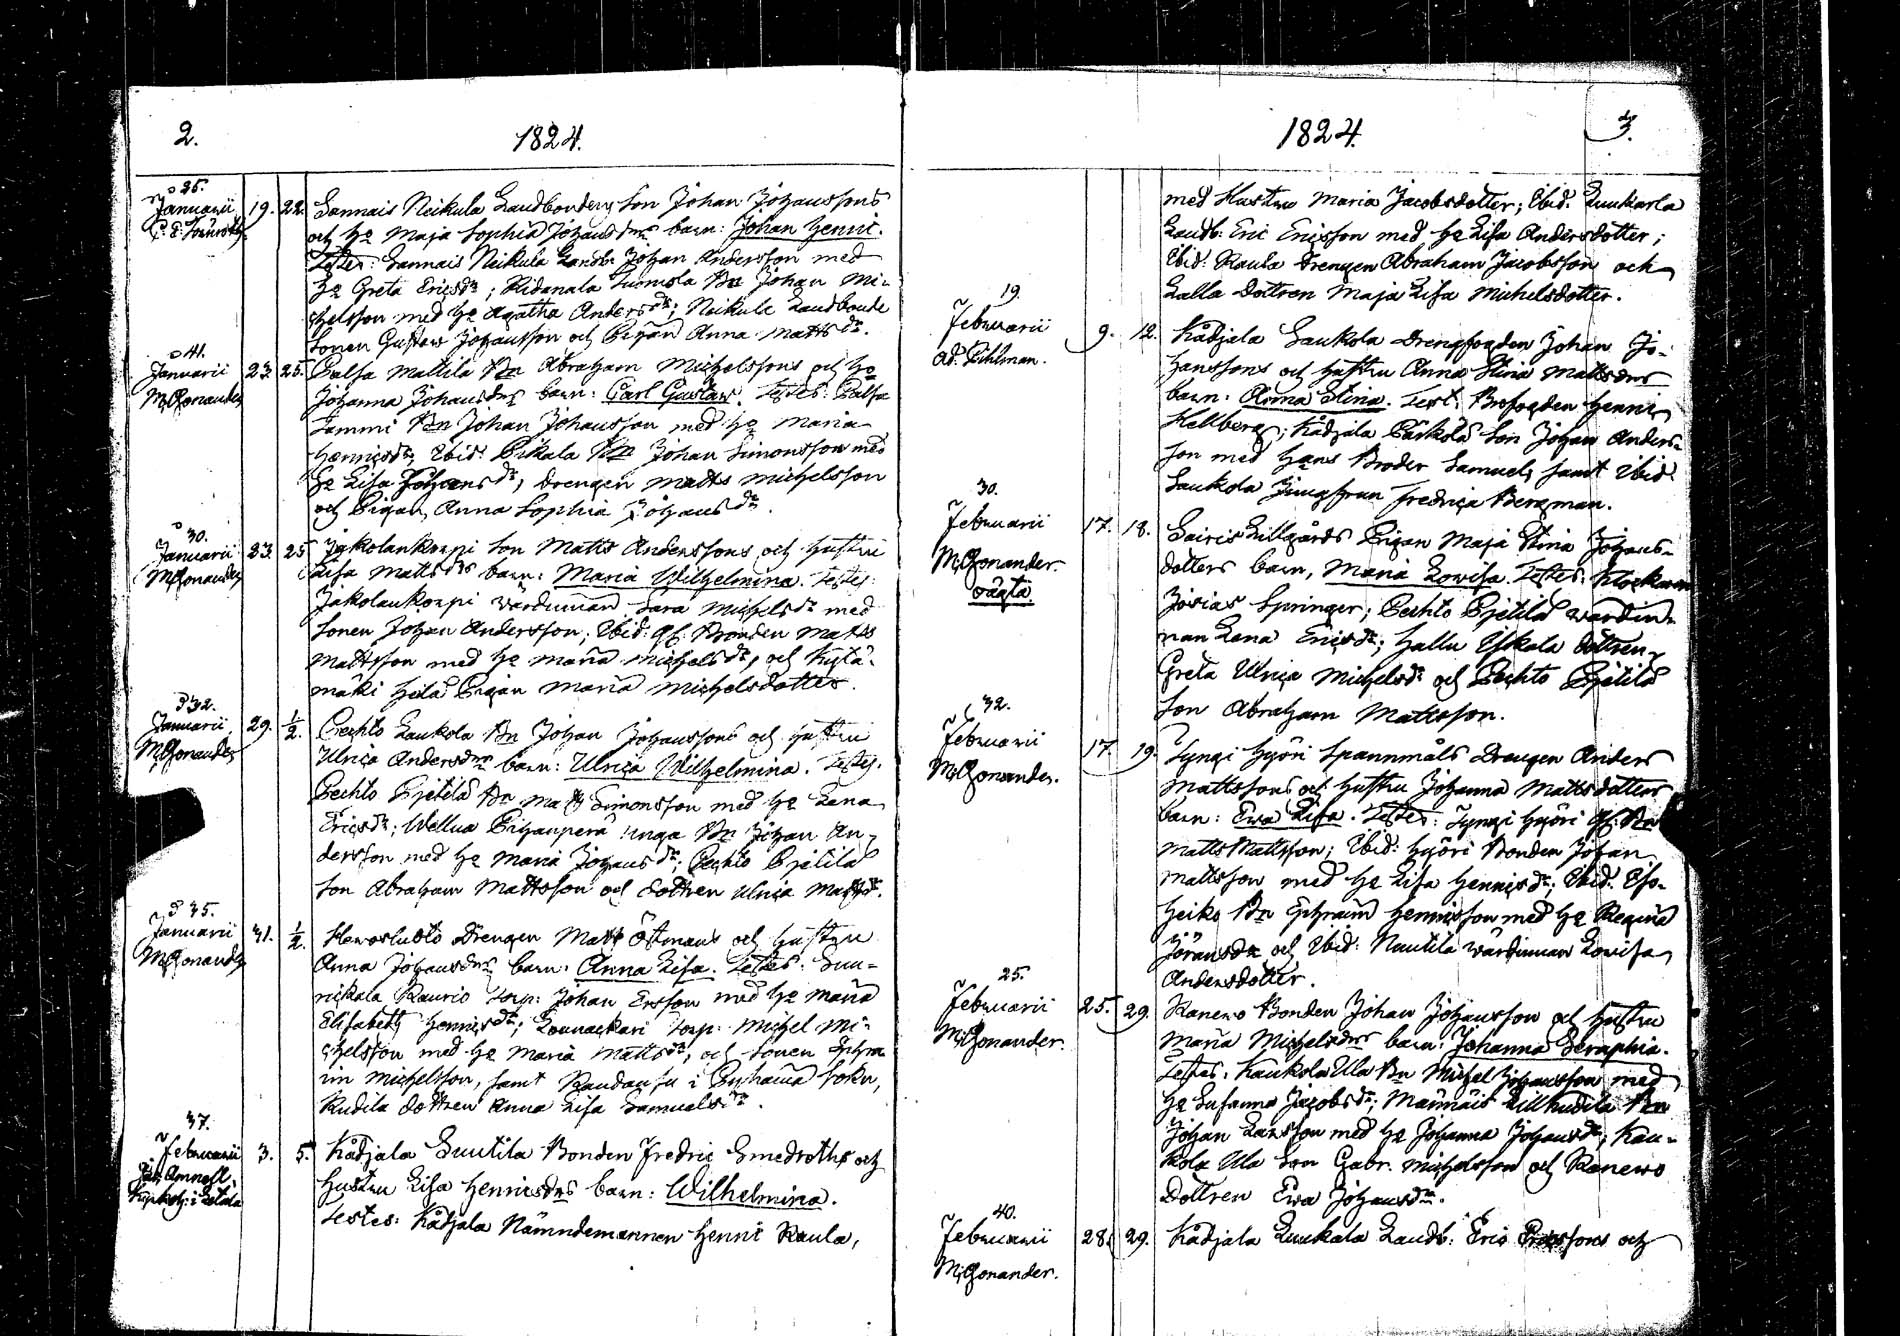 2.
1824.
25.
Januarii 19. 22. Sannais Neikula Landbondens Son Johan Johanssons
och h:o Maja Sophia Johansdrs barn: Johan Henric.
Testes: Sannais Neikula Landb. Johan Andersson med
h:o Greta Ericsdr; Ridanala Tuomola Bn Johan Mi-
chelsson med h:o Agatha Andersdr; Neikula Landbonde
Sonen Gustav Johansson och Pigan Anna Mattsdr.
41.
Januarii 23. 25. Palsa Mattila Bn Abraham Michelssons och h:o
M. Gonander Johanna Johansdrs barn: Carl Gustav. Testes: Palsa
Sammi Bn Johan Johansson med h:o Maria
Henricsdr, Ibid: Pikala Bn Johan Simonsson med
h:o Lisa Johansdr, drengen Matts Michelsson
och Pigan Anna Sophia Johansdr.
30.
Januarii 23. 25 Jakolankorpi Son Matts Anderssons och hustru
M. Gonander Lisa Mattsdrs barn: Maria Wilhelmina. Testes:
Jakolankorpi värdinnan Sara Michelsdr med
Sonen Johan Andersson, Ibid: Bonden Matts
Mattsson med h:o Maria Michelsdr, och
mäki Heila Pigan Maria Michelsdotter.
32.
Januarii 29. 1/2. Pechto Laukola Bn Johan Johanssons och hustru
M. Gonander Ulrica Andersdrs barn: Ulrica Wilhelmina. Testes.
Pechto Pjetilä Bn Matts Simonsson med h:o Lena
Ericsdr; Wellua Pihanperä unga Bn Johan An-
dersson med h:o Maria Johansdr; Pechto Pjetilä
Son Abraham Mattsson och dottren Ulrica Mattsdr.
35.
Januarii 31. 1/2. Drengen Matts Östmans och hustru
M. Gonander Anna Johansdrs barn: Anna Lisa. Testes: Suu-
nickala Raurio Torp: Johan Ersson med h:o Maria
Elisabeth Henricsdr; Lounackari Torp: Michel Mi-
chelsson med h:o Maria Mattsdr, och Sonen Ephra-
im Michelsson, samt i Pyhämä Sokn,
Rudila dottren Anna Lisa Samuelsdr.
37.
Februarii 3. 5. Kådjala Suutila Bonden Fredric Smedroths och
hustru Lisa Henricsdrs barn: Wilhelmina.
Testes: Kådjala Nämndemannen Henric Raula,
1824.
3.
med Hustru Maria Jacobsdotter; Ibid. Luukarla
Landb: Eric Ericsson med h:o Lisa Andersdotter;
Ibid: Raula Drengen Abraham Jacobsson och
Lalla Dottren Maja Lisa Michelsdotter.
19.
Februarii 9. 12. Kådjala Saukola Drengfogden Johan Jo-
Ad. Pihlman. hanssons och hustru Anna Stina Mattsdrs
barn: Anna Stina. Test: Brofogden Henric
Hellberg; Kådjala Päskola Son Johan Anders-
son med hans Broder Samuel, samt Ibid
Saukola Jungfrun Fredrica Bergman.
30.
Februarii 17. 18. Sairis Lillgårds Pigan Maja Stina Johans-
M. Gonander. dotters barn, Maria Lovisa. Testes: Klockaren
oägta. Josias Springer; Pechto Pjetilä värdin-
nan Lena Ericsdr; Hallu Eskola dottren
Greta Ulrica Michelsdr och Pechto Pjetilä
Son Abraham Mattsson.
32.
Februarii 17. 19. Tyngi Hyöri Spannmåls Drengen Anders
M. Gonander. Mattssons och hustru Johanna Mattsdotters
barn: Eva Lisa. Testes: Tyngi Hyöri
Matts Mattsson; Ibid: Hyöri Bonden Johan
Mattsson med h:o Lisa Henricsdr; Ibid: Eso-
heiko Bn Ephraim Henricsson med h:o Regina
Göransdr och Ibid: Nautila värdinnan Lovisa
Andersdotter.
25.
Februarii 25. 29. Ranevo Bonden Johan Johansson och hustru
M. Gonander. Maria Michelsdrs barn: Johanna Seraphia.
Testes: Kaukola Ula Bn Michel Johansson med
h:o Susanna Jacobsdr; Männäis Lillhudila Bn
Johan Larsson med h:o Johanna Johansdr, Kau-
kola Ula Son Gabr. Michelsson och Ranevo
Dottren Eva Johansdr.
40.
Februarii 28. 29. Kådjala Luukala Landb: Eric Ericssons och
M. Gonander.